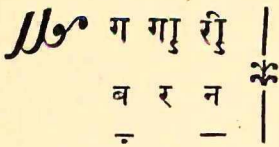 ग गाु रीु
ब र न